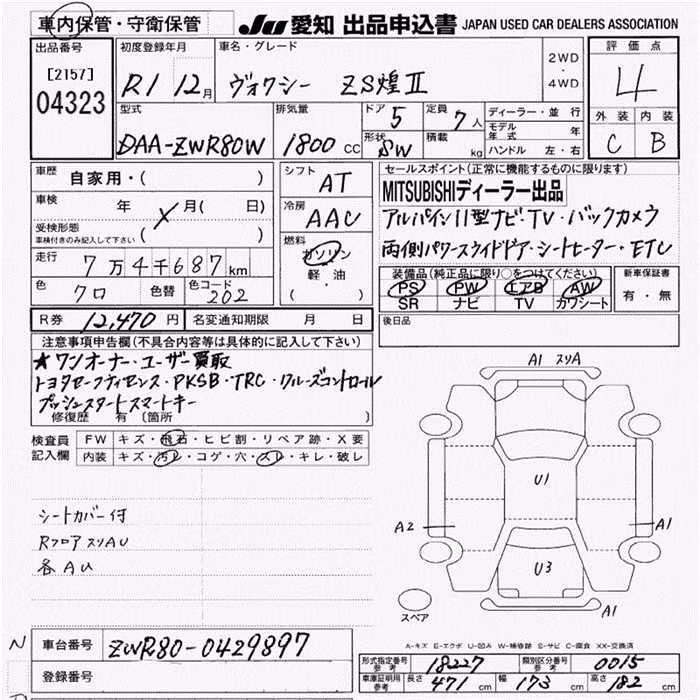 車内保管・守衛保管 JU 愛知 出品申込書 JAPAN USED CAR DEALERS ASSOCIATION
出品番号 初度登録年月 車名・グレード 評価点
[2157] 04323 R1 12月 ヴォクシー ZS煌Ⅱ 2WD・4WD 4
型式 排気量 ドア 5 定員 7人 ディーラー・並行 外装 内装
DAA-ZWR80W 1800cc 形状 SW 積載 kg モデル年式 年 C B
ハンドル 左・右
車歴 自家用・( ) シフト AT セールスポイント(正常に機能するものに限ります)
車検 年 X 月( 日) 冷房 AAC MITSUBISHIディーラー出品
受検形態 車検付きのみ記入して下さい ( ) アルパイン11型ナビ・TV・バックカメラ
走行 7万4千687km 燃料 ガソリン 軽・油 ( ) 両側パワースライドドア・シートヒーター・ETC
色 クロ 色替 色コード 202 装備品(純正品に限り○をつけてください) 新車保証書
PS PW エアB AW 有・無
SR ナビ TV カワシート
R券 12,470円 名変通知期限 月 日 後日品
注意事項申告欄(不具合内容等は具体的に記入して下さい)
★ワンオーナー・ユーザー買取
トヨタセーフティセンス・PKSB・TRC・クルーズコントロール
プッシュスタートスマートキー
修復歴 有 (箇所
検査員記入欄 FW キズ・飛石・ヒビ割・リペア跡・X要
内装 キズ・汚レ・コゲ・穴・スレ・キレ・破レ
シートカバー付
Rフロアスリ AU
各AU
A1 スリA
U1
A2 A1
U3
スペア A1
A-キズ E-エクボ U-凹み W-補修跡 S-サビ C-腐食 XX-交換済
N 車台番号 ZWR80-0429897
登録番号
形式指定番号 参考 18227 類別区分番号 参考 0015
車庫証明用 参考 長さ 471cm 幅 173cm 高さ 182cm